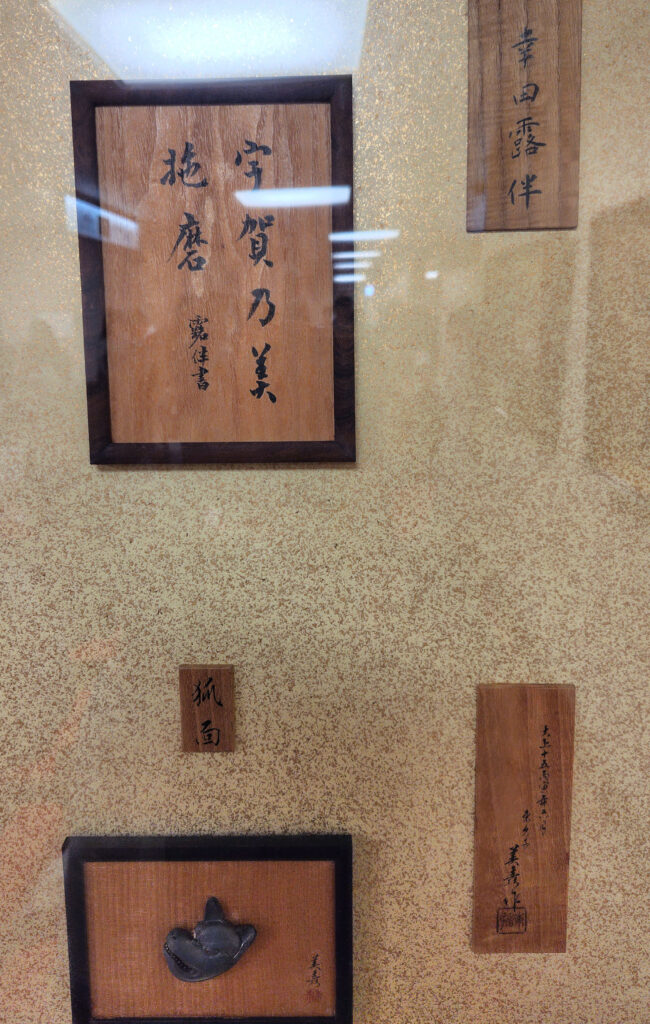 幸田露伴
宇賀乃美
拖磨
露伴書
狐面
大正十五丙寅年
美寿作
美寿